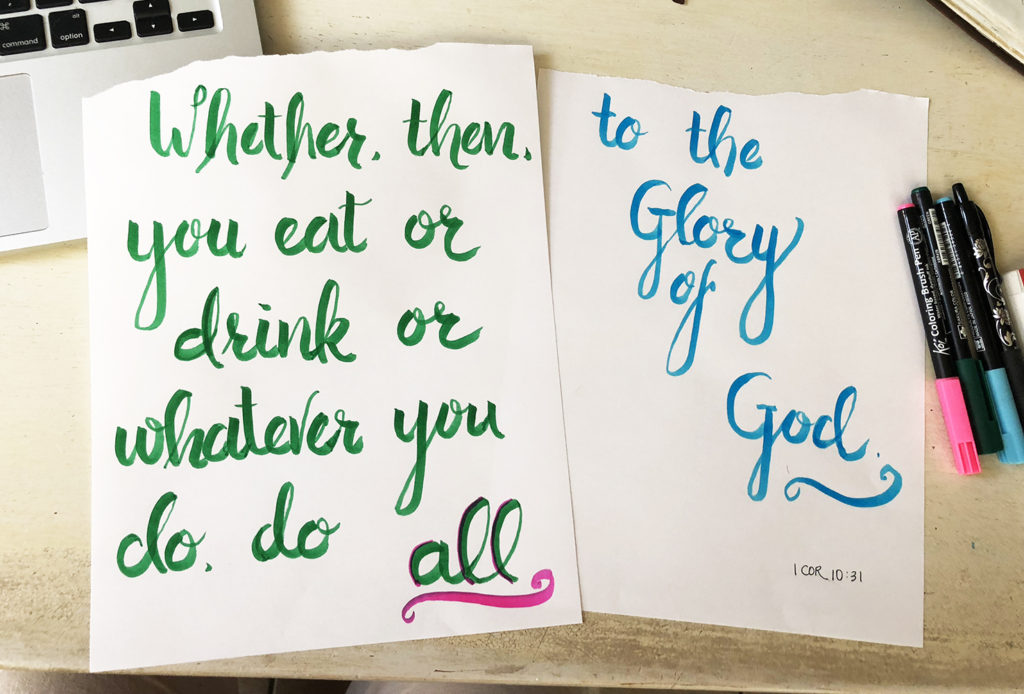 Whether, then,
you eat or
drink or
whatever you
do, do all
to the
Glory
of
God.
1 COR 10:31
Koi Coloring Brush Pen
command
option
alt